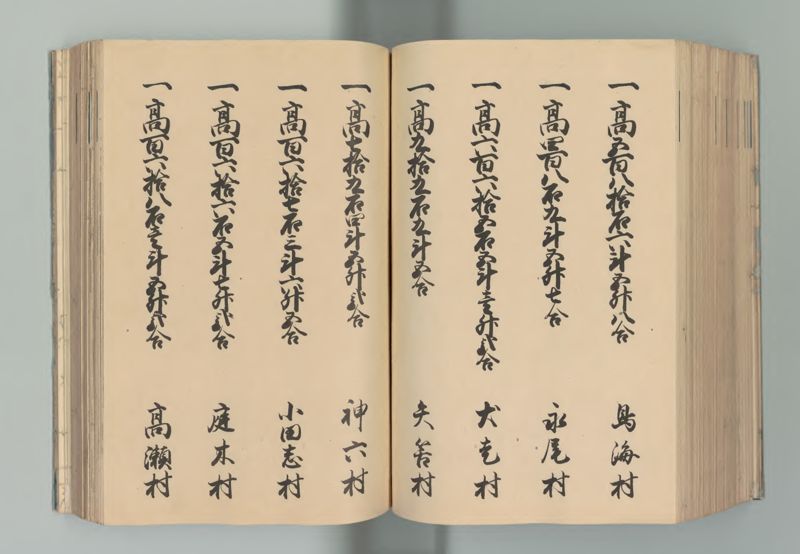 一高五百八拾石六斗五升八合 鳥海村
一高四百八石九斗五升七合 永尾村
一高六百六拾五石五斗壱升弐合 犬走村
一高九拾九石九斗五合 矢筈村
一高七拾九石四斗五升弐合 神六村
一高百六拾七石三斗六升五合 小田志村
一高百六拾六石五斗七升弐合 庭木村
一高百六拾八石壱斗五升弐合 高瀬村